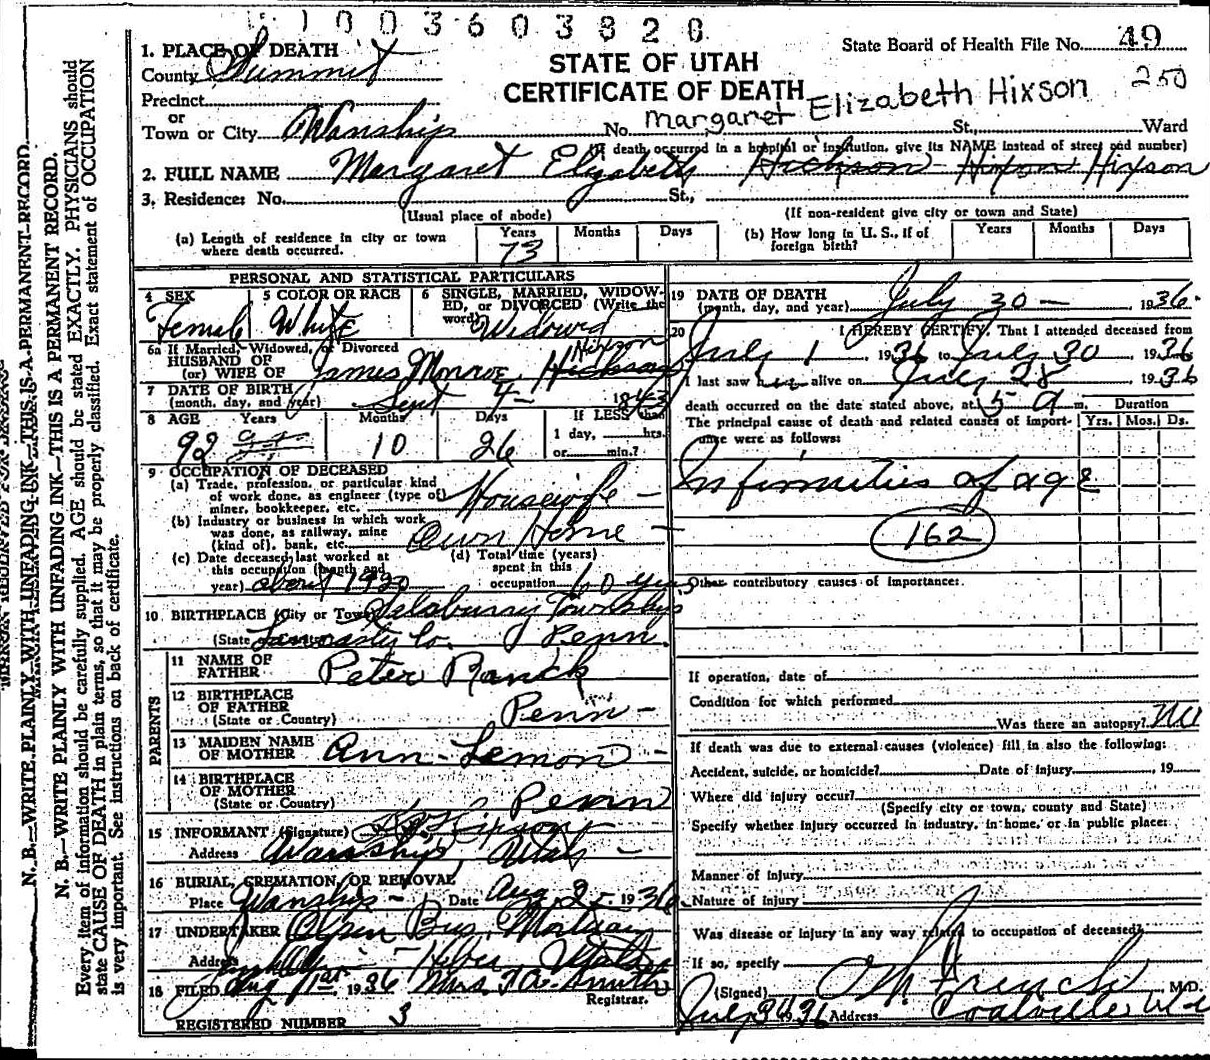 1003603820
1. PLACE OF DEATH
County Summit
STATE OF UTAH
CERTIFICATE OF DEATH
State Board of Health File No. 49
250
Precinct
or
Town or City Wanship No. Margaret Elizabeth Hixson St., Ward
(If death occurred in a hospital or institution, give its NAME instead of street and number)
2. FULL NAME Margaret Elizabeth Hickson Hixon Hixson
3. Residence: No. St.,
(Usual place of abode) (If non-resident give city or town and State)
(a) Length of residence in city or town where death occurred. Years 73 Months Days
(b) How long in U. S., if of foreign birth? Years Months Days
PERSONAL AND STATISTICAL PARTICULARS
4 SEX Female
5 COLOR OR RACE White
6 SINGLE, MARRIED, WIDOWED, or DIVORCED (Write the word) Widowed
6a If Married, Widowed, or Divorced
HUSBAND OF
(or) WIFE OF James Monroe Hickson Hixson
7 DATE OF BIRTH
(month, day, and year) Sept 4 - 1843
8 AGE Years 92 Months 10 Days 26
If LESS than
1 day, hrs.
or min.?
9 OCCUPATION OF DECEASED
(a) Trade, profession, or particular kind
of work done, as engineer (type of)
miner, bookkeeper, etc. Housewife -
(b) Industry or business in which work
was done, as railway, mine
(kind of), bank, etc. Own Home -
(c) Date deceased last worked at
this occupation (month and
year) about 1920
(d) Total time (years)
spent in this
occupation 60 years
10 BIRTHPLACE (City or Town) Township
(State or Country) Lancaster Co. Penn.
PARENTS
11 NAME OF
FATHER Peter Ranck
12 BIRTHPLACE
OF FATHER
(State or Country) Penn -
13 MAIDEN NAME
OF MOTHER Ann Lemon -
14 BIRTHPLACE
OF MOTHER
(State or Country) Penn
15 INFORMANT (Signature)
Address Wanship, Utah -
16 BURIAL, CREMATION, OR REMOVAL
Place Wanship - Date Aug 2 - 1936
17 UNDERTAKER Olpin Bros. Mortuary
Address Heber Utah
18 FILED Aug 1st 1936 Mrs. Smith
Registrar.
REGISTERED NUMBER 3
19 DATE OF DEATH
(month, day, and year) July 30 - 1936.
20 I HEREBY CERTIFY, That I attended deceased from
July 1 1936 to July 30 1936
I last saw her alive on July 28 1936
death occurred on the date stated above, at 5 a m.
Duration
The principal cause of death and related causes of importance were as follows: Yrs. Mos. Ds.
Infirmities of age
162
Other contributory causes of importance:
If operation, date of
Condition for which performed
Was there an autopsy? No
If death was due to external causes (violence) fill in also the following:
Accident, suicide, or homicide? Date of injury , 19
Where did injury occur?
(Specify city or town, county and State)
Specify whether injury occurred in industry, in home, or in public place:
Manner of injury
Nature of injury
Was disease or injury in any way related to occupation of deceased?
If so, specify
(Signed) M.D.
July 1936 Address Coalville
N. B.—WRITE PLAINLY WITH UNFADING INK—THIS IS A PERMANENT RECORD.
N. B.—WRITE PLAINLY WITH UNFADING INK—THIS IS A PERMANENT RECORD.
Every item of information should be carefully supplied. AGE should be stated EXACTLY. PHYSICIANS should
state CAUSE OF DEATH in plain terms, so that it may be properly classified. Exact statement of OCCUPATION
is very important. See instructions on back of certificate.